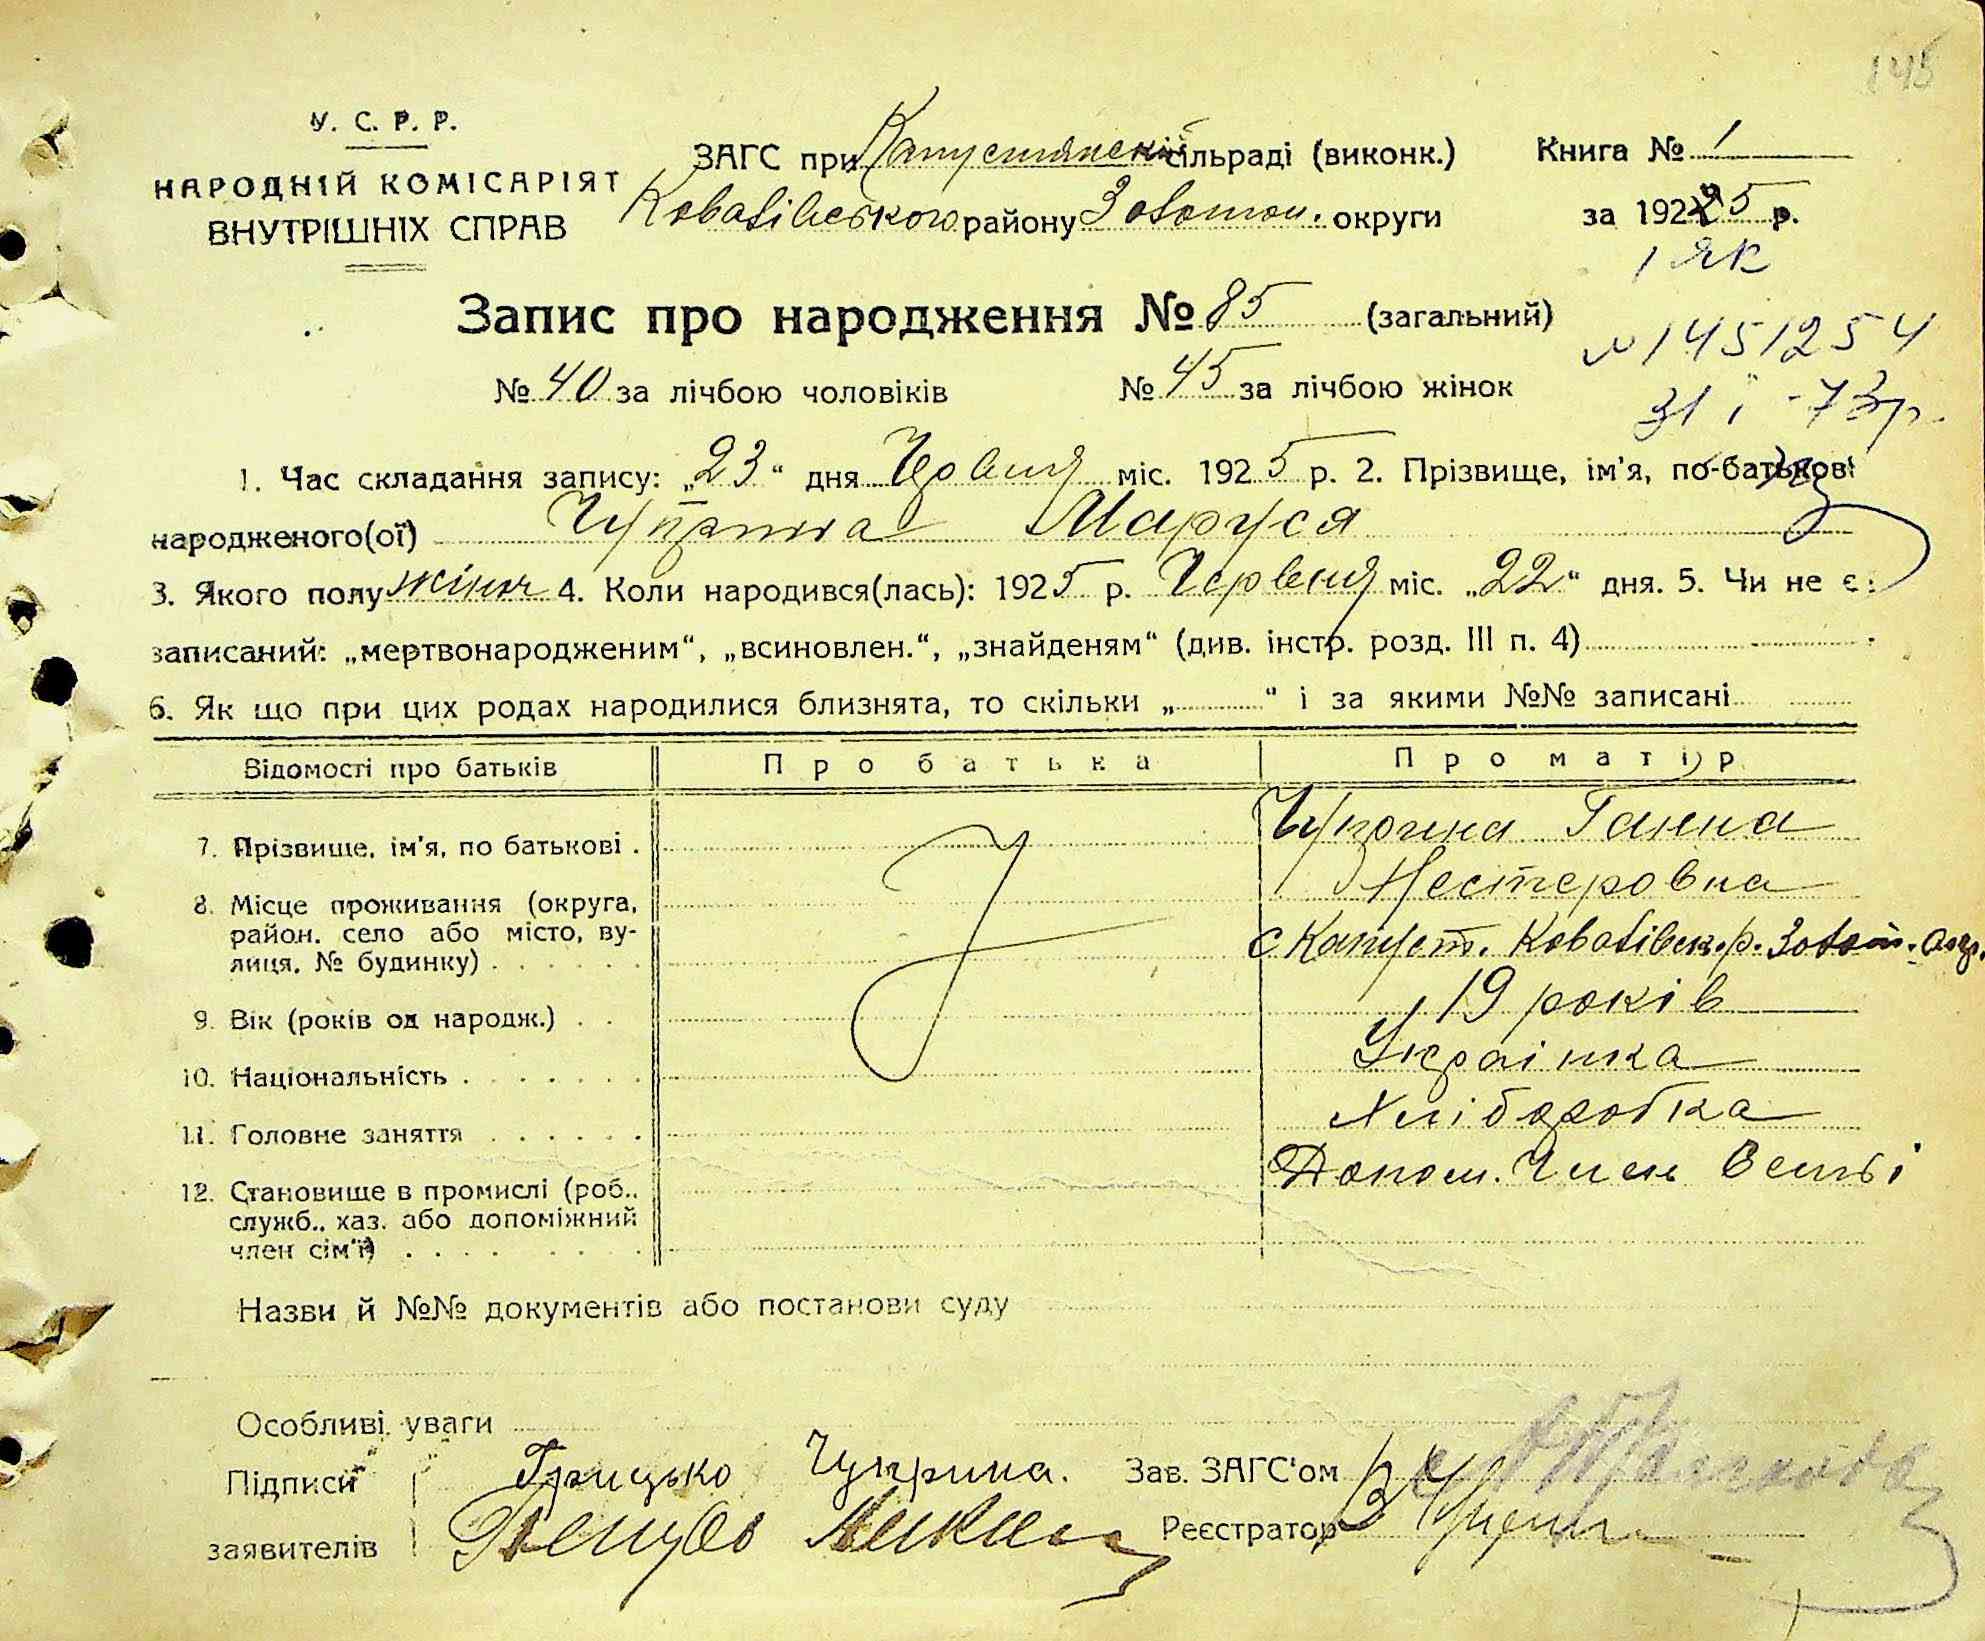 145
У. С. Р. Р.
НАРОДНІЙ КОМІСАРІЯТ
ВНУТРІШНІХ СПРАВ
ЗАГС при Капустянській сільраді (виконк.)
Ковалівського району Золотон. округи
Книга № 1
за 1925 р.
1 як
Запис про народження № 85 (загальний)
№ 40 за лічбою чоловіків № 45 за лічбою жінок
№ 1451254
31 і -73р.
1. Час складання запису: „23“ дня Червня міс. 1925 р. 2. Прізвище, ім'я, по-батькові
народженого(ої) Чуприна Маруся
3. Якого полу жіноч 4. Коли народився(лась): 1925 р. Червня міс. „22“ дня. 5. Чи не є:
записаний: „мертвонародженим“, „всиновлен.“, „знайденям“ (див. інстр. розд. III п. 4)
6. Як що при цих родах народилися близнята, то скільки „ “ і за якими №№ записані
Відомості про батьків Про батька Про матір
7. Прізвище, ім'я, по батькові . Чуприна Ганна
Нестеровна
8. Місце проживання (округа,
район, село або місто, ву-
лиця, № будинку) . . . . . . с. Капуст. Ковалівськ. р. Золот. окр.
9. Вік (років од народж.) . . 19 років
10. Національність . . . . . . . Українка
11. Головне заняття . . . . . . Хліборобка
12. Становище в промислі (роб.,
служб., хаз. або допоміжний
член сім'ї) . . . . . . . . Допом. Член Семьі
Назви й №№ документів або постанови суду
Особливі уваги
Підписи Грицько Чуприна. Зав. ЗАГС'ом
заявителів Реєстратор